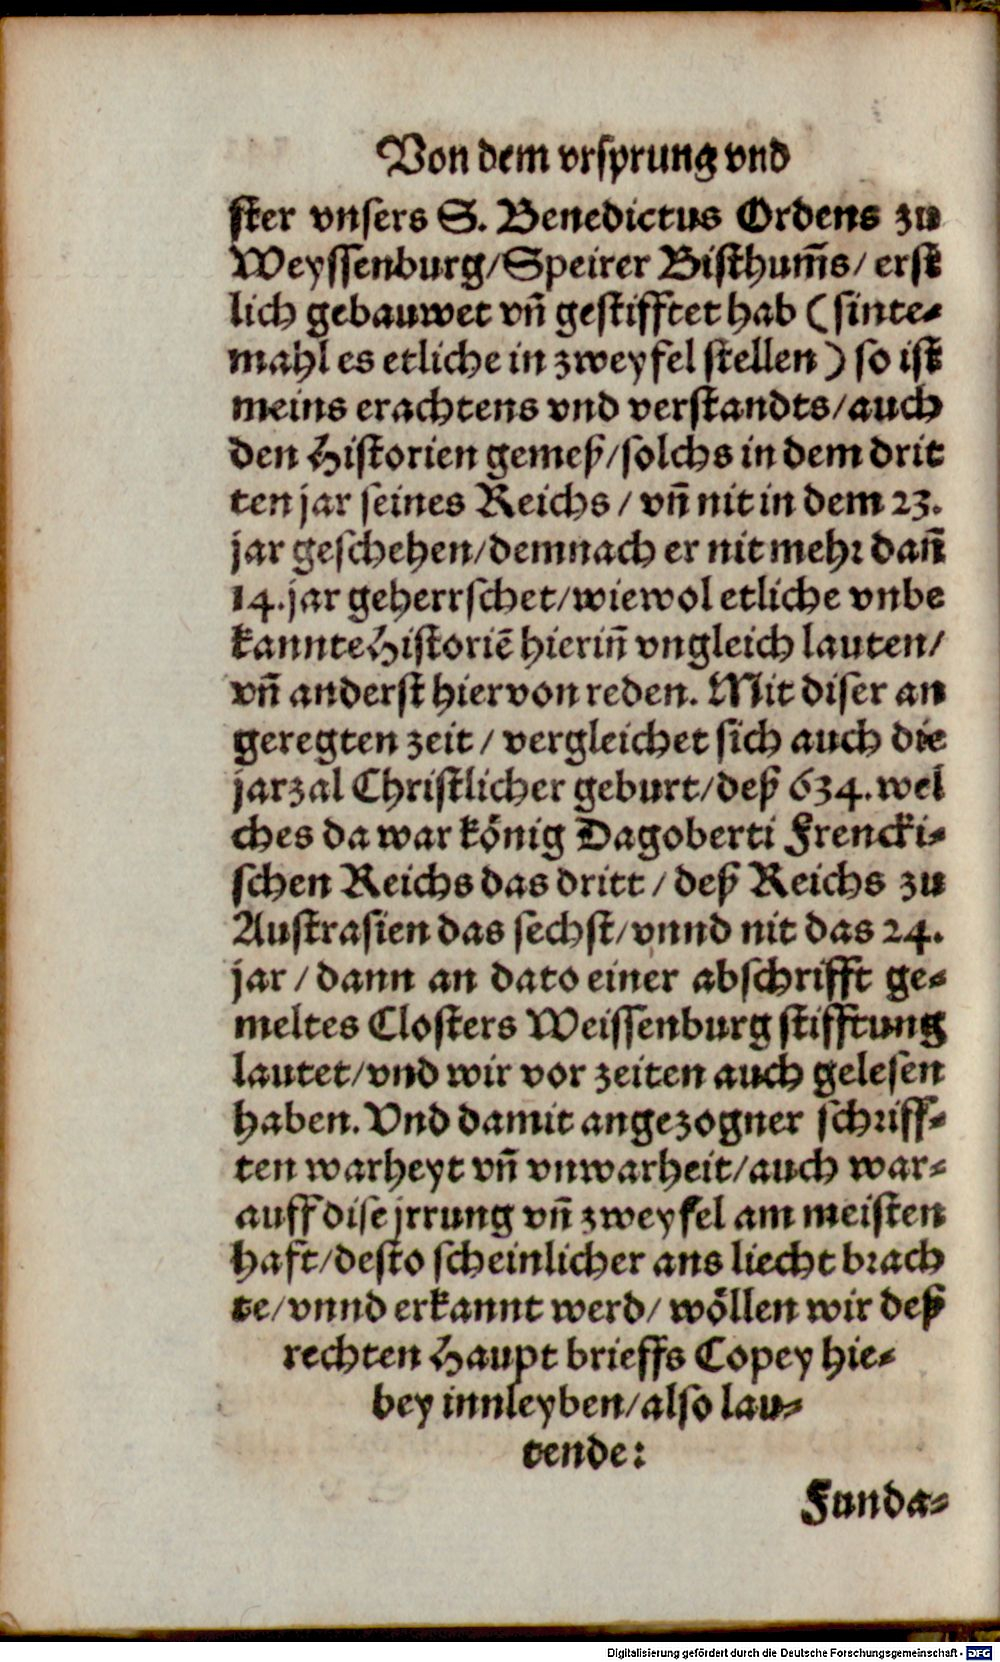 Von dem vrsprung vnd
ster vnsers S. Benedictus Ordens zu
Weyssenburg/Speirer Bisthum̃s/ erst
lich gebauwet vñ gestifftet hab (sinte-
mahl es etliche in zweyfel stellen) so ist
meins erachtens vnd verstandts/auch
den Historien gemeß/solchs in dem drit
ten jar seines Reichs / vñ nit in dem 23.
jar geschehen/demnach er nit mehr dañ
14.jar geherrschet/wiewol etliche vnbe
kannte Historiē hieriñ vngleich lauten/
vñ anderst hiervon reden. Mit diser an
geregten zeit / vergleichet sich auch die
jarzal Christlicher geburt/deß 634. wel
ches da war könig Dagoberti Frencki-
schen Reichs das dritt / deß Reichs zu
Austrasien das sechst/vnnd nit das 24.
jar / dann an dato einer abschrifft ge-
meltes Closters Weissenburg stifftung
lautet/vnd wir vor zeiten auch gelesen
haben. Vnd damit angezogner schriff-
ten warheyt vñ vnwarheit/auch war-
auff dise jrrung vñ zweyfel am meisten
haft/desto scheinlicher ans liecht brach
te/vnnd erkannt werd/ wöllen wir deß
rechten Haupt brieffs Copey hie-
bey innleyben/also lau-
tende:
Funda-
Digitalisierung gefördert durch die Deutsche Forschungsgemeinschaft - DFG